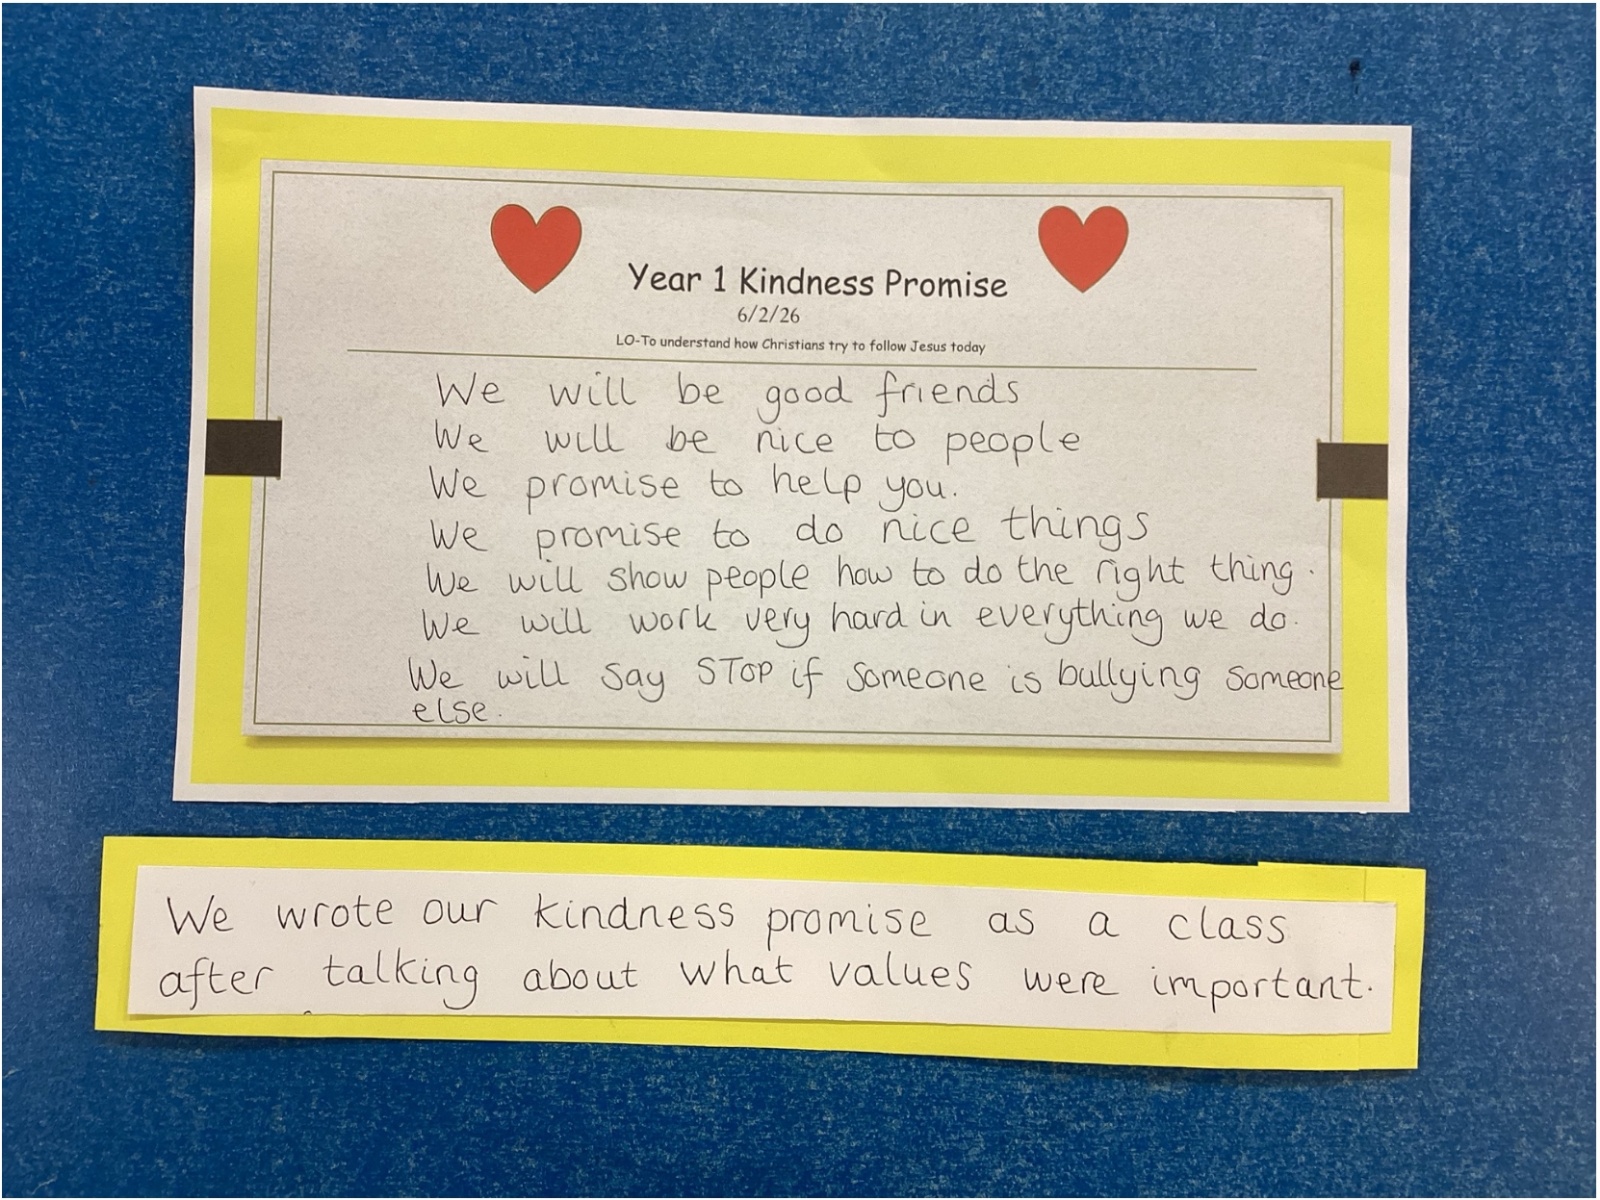 Year 1 Kindness Promise
6/2/26
LO-To understand how Christians try to follow Jesus today
We will be good friends
We will be nice to people
We promise to help you.
We promise to do nice things
We will show people how to do the right thing.
We will work very hard in everything we do.
We will say STOP if someone is bullying someone
else.
We wrote our kindness promise as a class
after talking about what values were important.